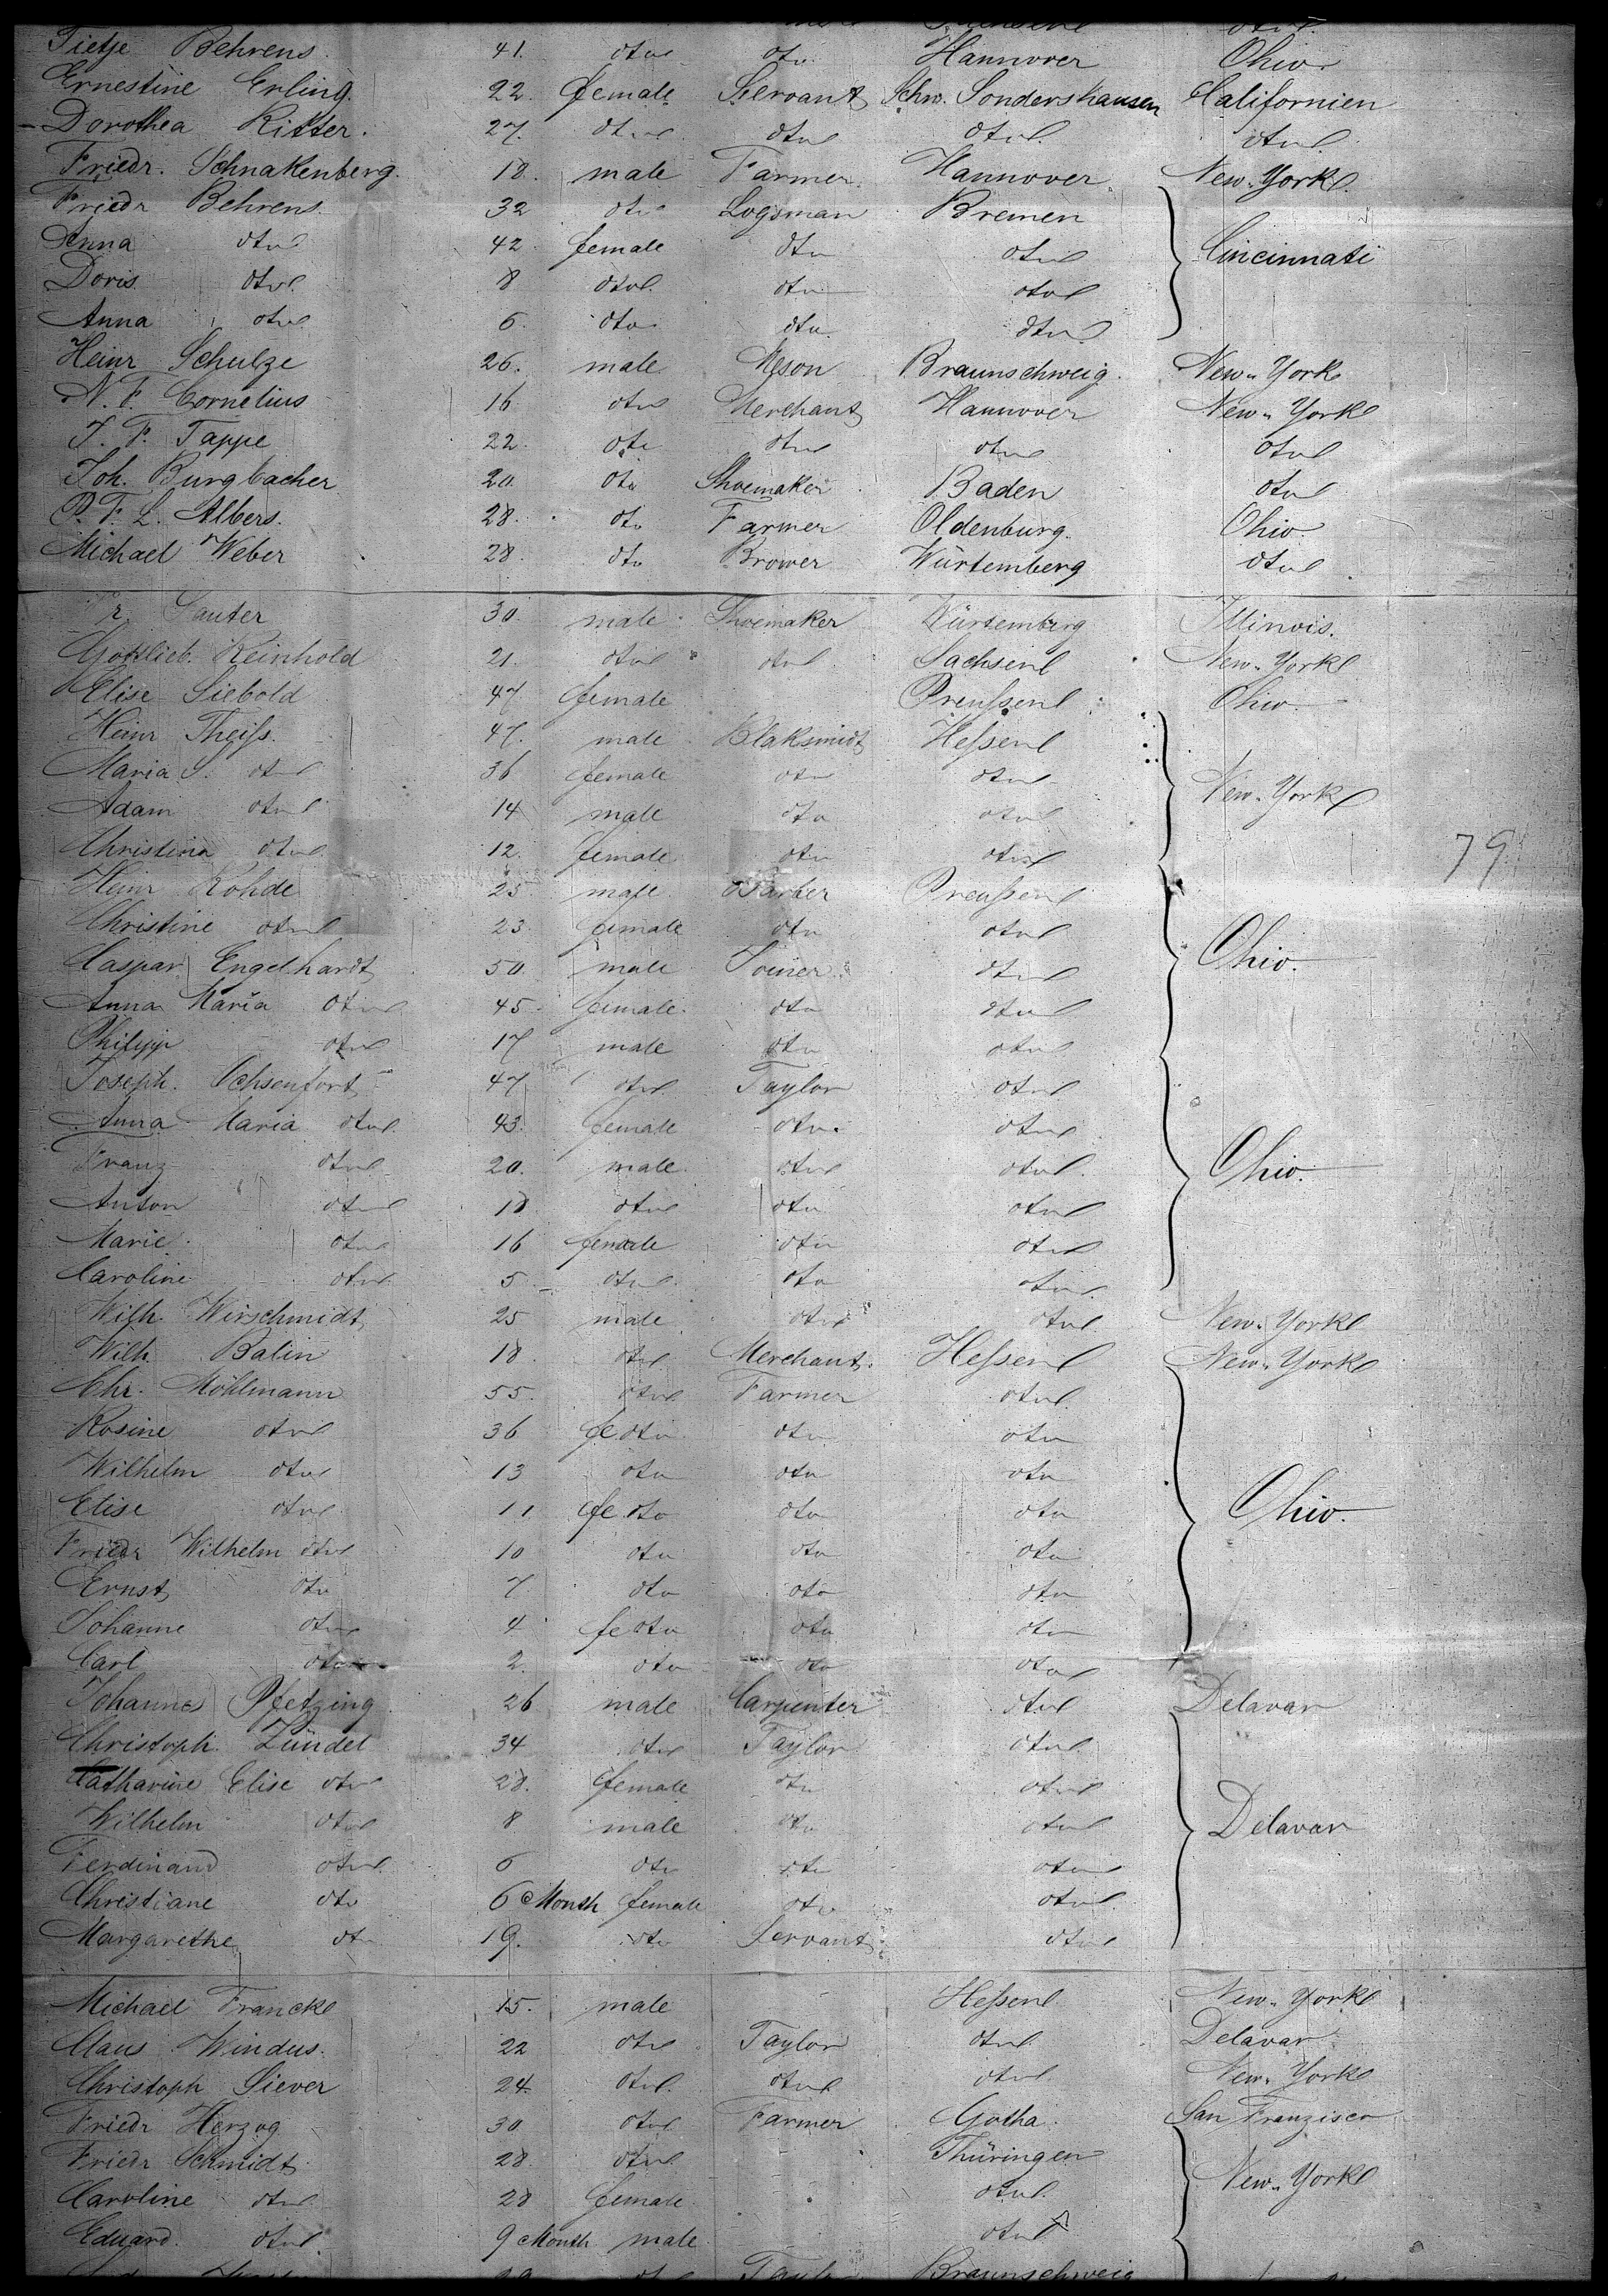 Tietje Behrens. 41. dto dto Hannover Ohio
Ernestine Erling. 22. female Servant Schw. Sondershausen Californien
Dorothea Ritter. 27. dto dto dto dto
Friedr. Schnakenberg. 18. male Farmer. Hannover New-York.
Friedr Behrens. 32 dto Logsman Bremen
Anna dto 42 female dto dto Cincinnati
Doris dto 8 dto dto dto
Anna dto 6. dto dto dto
Heinr Schulze 26. male Meson Braunschweig. New-York
N. F. Cornelius 16 dto Merchant Hannover New-York
J. F. Tappe 22. dto dto dto dto
Joh. Burgbacher 20 dto Shoemaker Baden dto
P. F. L. Albers. 28. dto Farmer Oldenburg. Ohio.
Michael Weber 28. dto Brower Würtemberg dto
Fr. Sauter 30. male Shoemaker Würtemberg Illinois.
Gottlieb. Reinhold 21. dto dto Sachsen New-York
Elise Siebold 47 female Preußen Ohio.
Heinr Theiß. 47. male Blaksmidt Heßen
Maria S. dto 36 female dto dto New-York
Adam dto 14 male dto dto
Christina dto 12. female dto dto
79
Heinr Rohde 25 male Barber Preußen
Christine dto 23. female dto dto
Caspar Engelhardt 50. male Joiner dto Ohio.
Anna Maria dto 45. female dto dto
Philipp dto 17 male dto dto
Joseph. Ochsenfort 47 dto Taylor dto
Anna Maria dto 43. female dto dto
Franz dto 20. male dto dto Ohio.
Anton dto 18 dto dto dto
Marie dto 16 female dto dto
Caroline dto 5 dto dto dto
Wilh. Wirschmidt 25 male dto dto New-York
Wilh. Balin 18. dto Merchant. Heßen New-York
Chr. Möhlmann 55. dto Farmer dto
Rosine dto 36 fe dto dto dto
Wilhelm dto 13 dto dto dto
Elise dto 11 fe dto dto dto Ohio.
Friedr Wilhelm dto 10 dto dto dto
Ernst dto 7 dto dto dto
Johanne dto 4 fe dto dto dto
Carl dto 2. dto dto dto
Johannes Pfetzing 26 male Carpenter dto Delavar
Christoph. Zündel 34 dto Taylor dto
Catharine Elise dto 28. female dto dto
Wilhelm dto 8 male dto dto Delavar
Ferdinand dto 6 dto dto dto
Christiane dto 6 Month female dto dto
Margarethe dto 19. dto Servant dto
Michael Francke 15. male Heßen New-York
Claus Windus. 22 dto Taylor dto Delavar
Christoph Siever 24. dto dto dto New-York
Friedr Herzog 30 dto Farmer Gotha. San Franzisco
Friedr Schmidt 28. dto Thüringen
Caroline dto 28 female dto New-York
Eduard. dto 9 Month male dto
Braunschweig